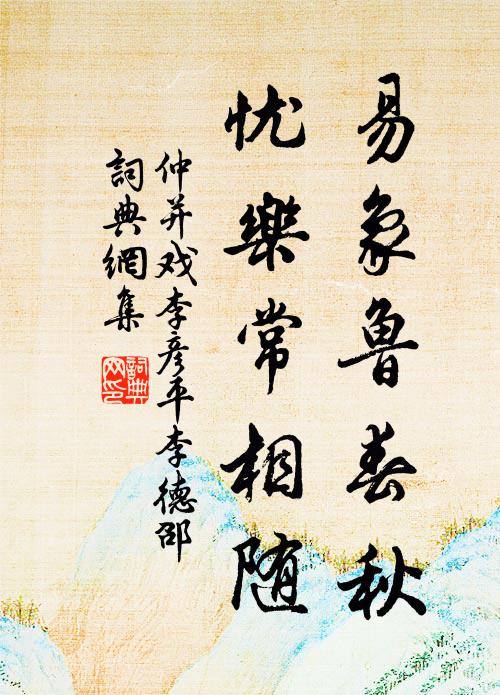 易象鲁春秋
忧樂常相随
仲并戏李彦平李德邵
詞典網集
詞典网印